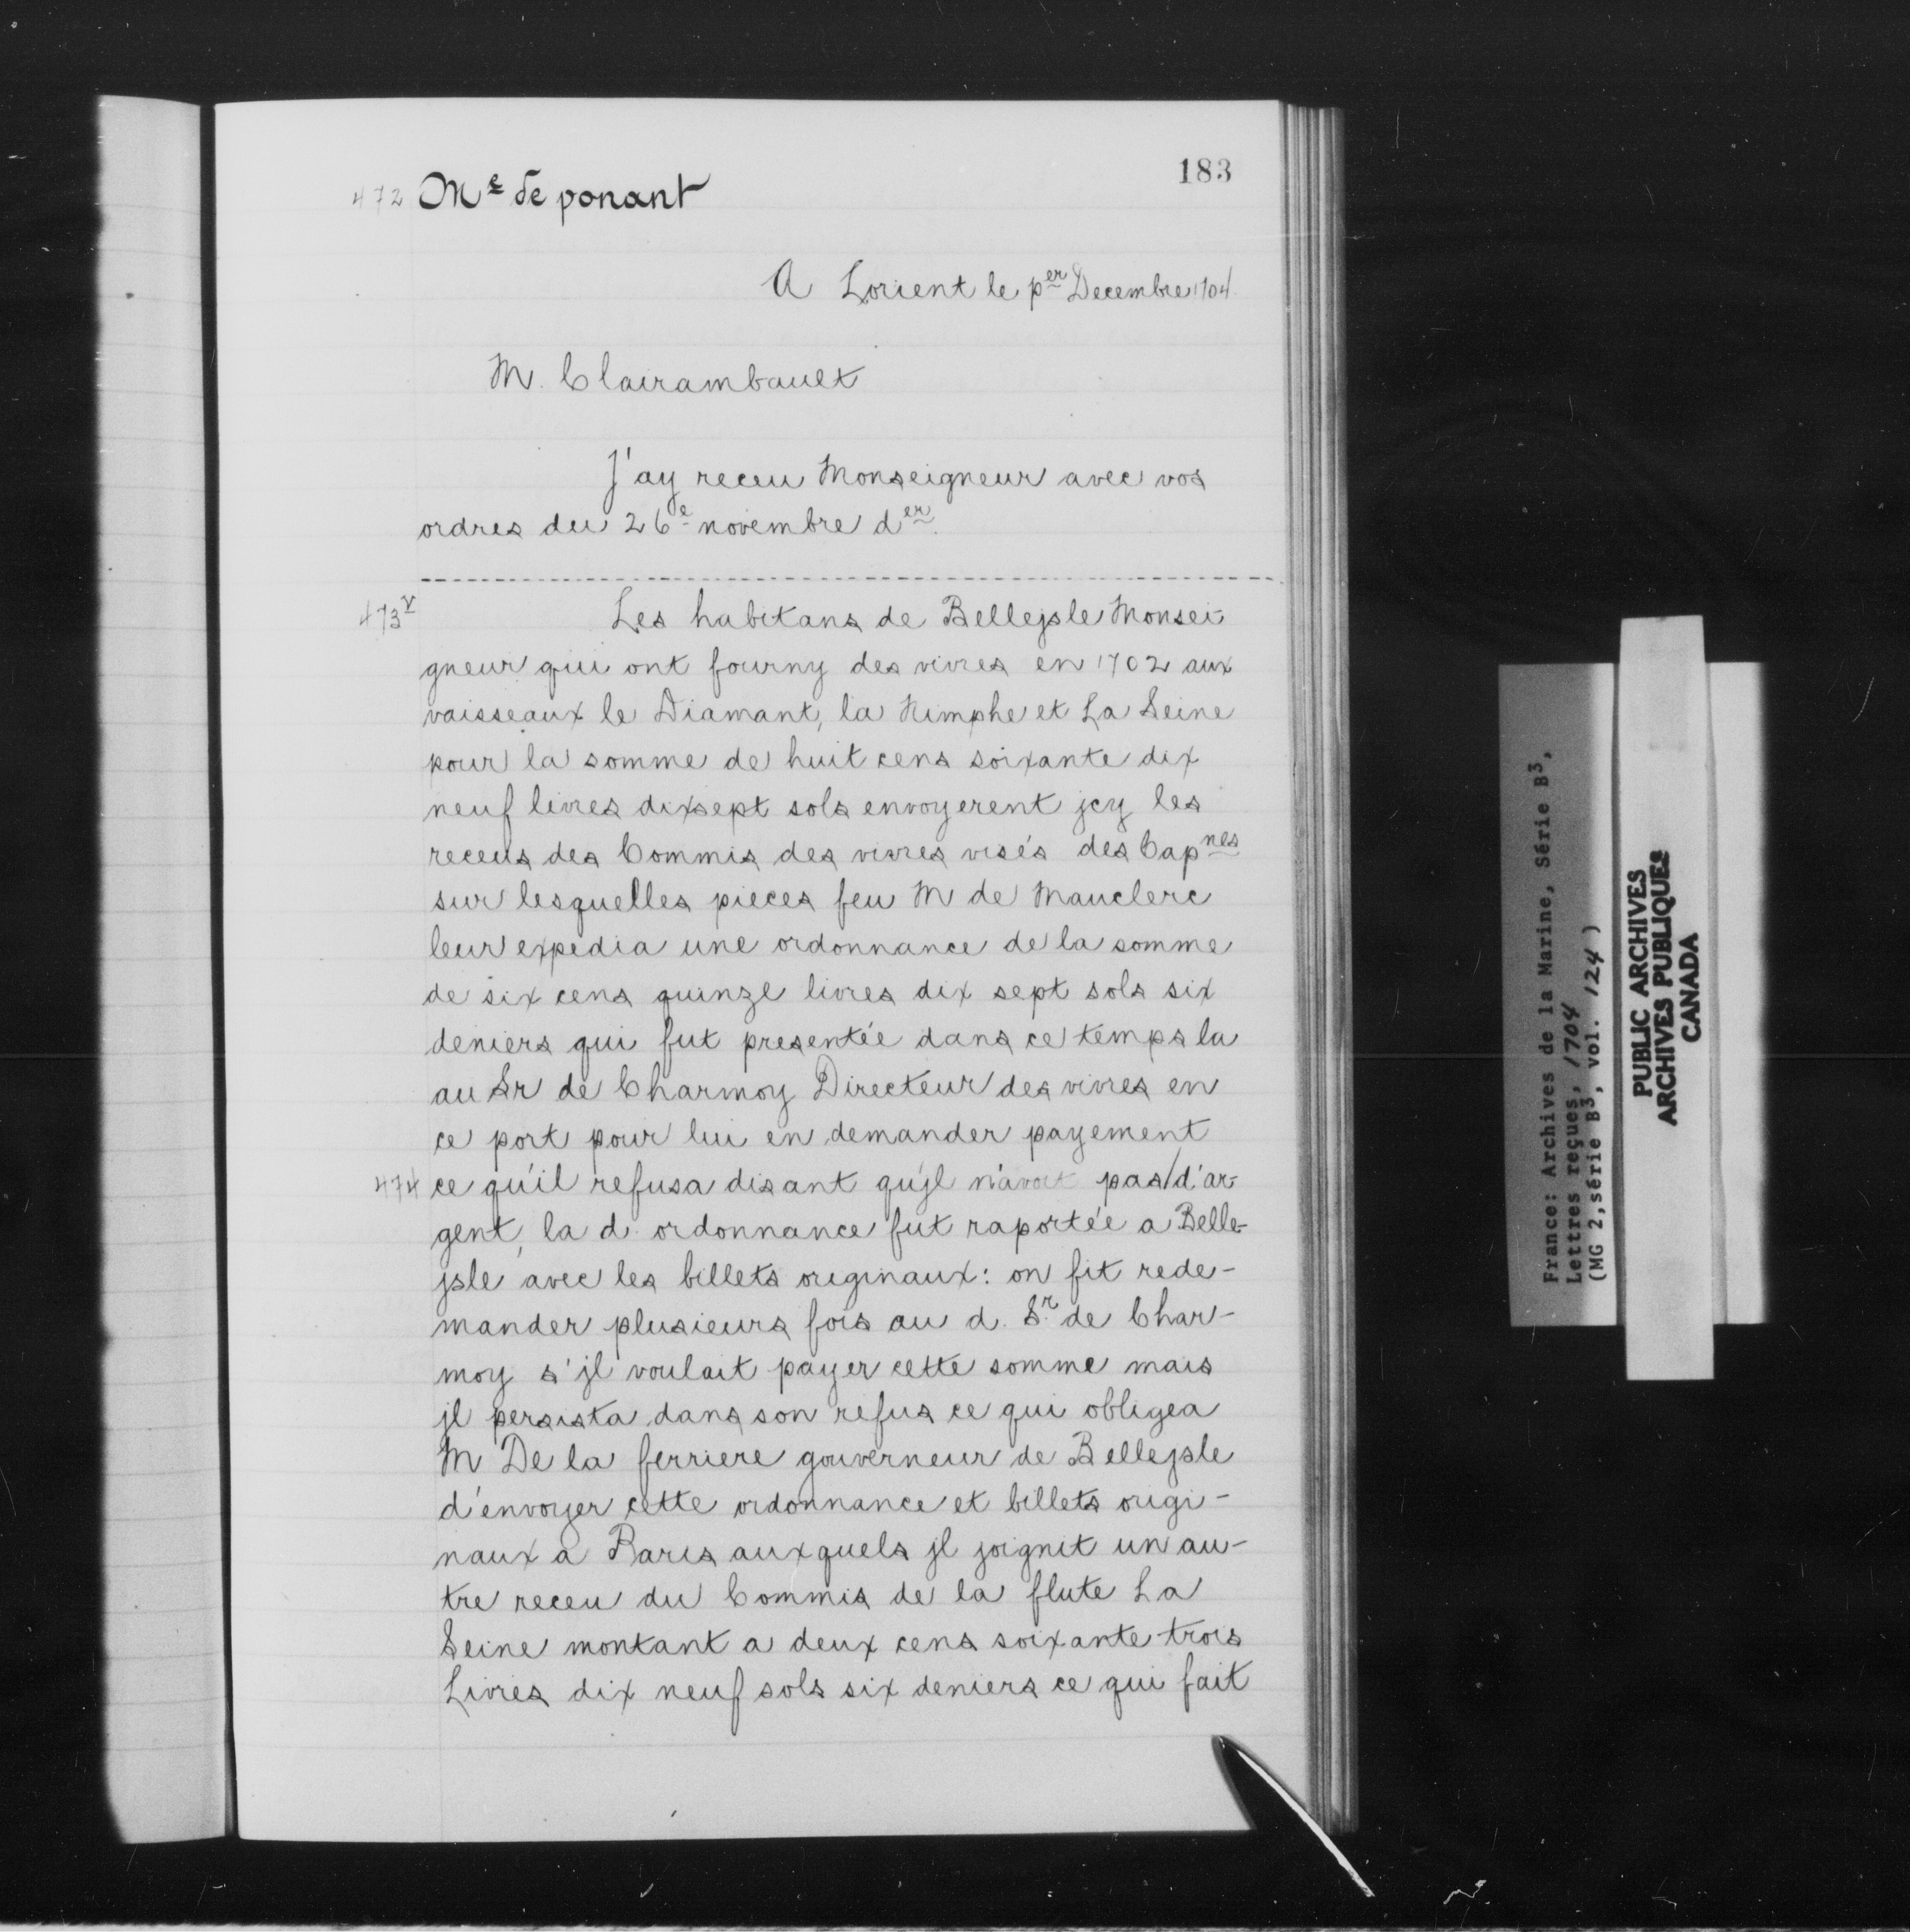 183
472 Me de ponant
A Lorient le per Decembre 1704
M. Clairambault
J'ay receu Monseigneur avec vos
ordres du 26e novembre der.
473v Les habitans de Bellejsle Monsei-
gneur qui ont fourny des vivres en 1702 aux
vaisseaux le Diamant, la Nimphe et La Seine
pour la somme de huit cens soixante dix
neuf livres dixsept sols envoyerent jcy les
receus des Commis des vivres visés des Capnes
sur lesquelles pieces feu M de Mauclerc
leur expedia une ordonnance de la somme
de six cens quinze livres dix sept sols six
deniers qui fut presentée dans ce temps la
au Sr de Charmoy Directeur des vivres en
ce port pour lui en demander payement
474 ce qu'il refusa disant qu'jl n'avoit pas/d'ar-
gent, la d. ordonnance fut raportée a Belle-
jsle avec les billets originaux: on fit rede-
mander plusieurs fois au d. Sr. de Char-
moy s'jl voulait payer cette somme mais
jl persista dans son refus ce qui obligea
M De la ferriere gouverneur de Bellejsle
d'envoyer cette ordonnance et billets origi-
naux a Paris auxquels jl joignit un au-
tre receu du Commis de la flute La
Seine montant a deux cens soixante trois
Livres dix neuf sols six deniers ce qui fait
France: Archives de la Marine, Série B3,
Lettres reçues, 1704
(MG 2, série B3, vol. 124)
PUBLIC ARCHIVES
ARCHIVES PUBLIQUES
CANADA